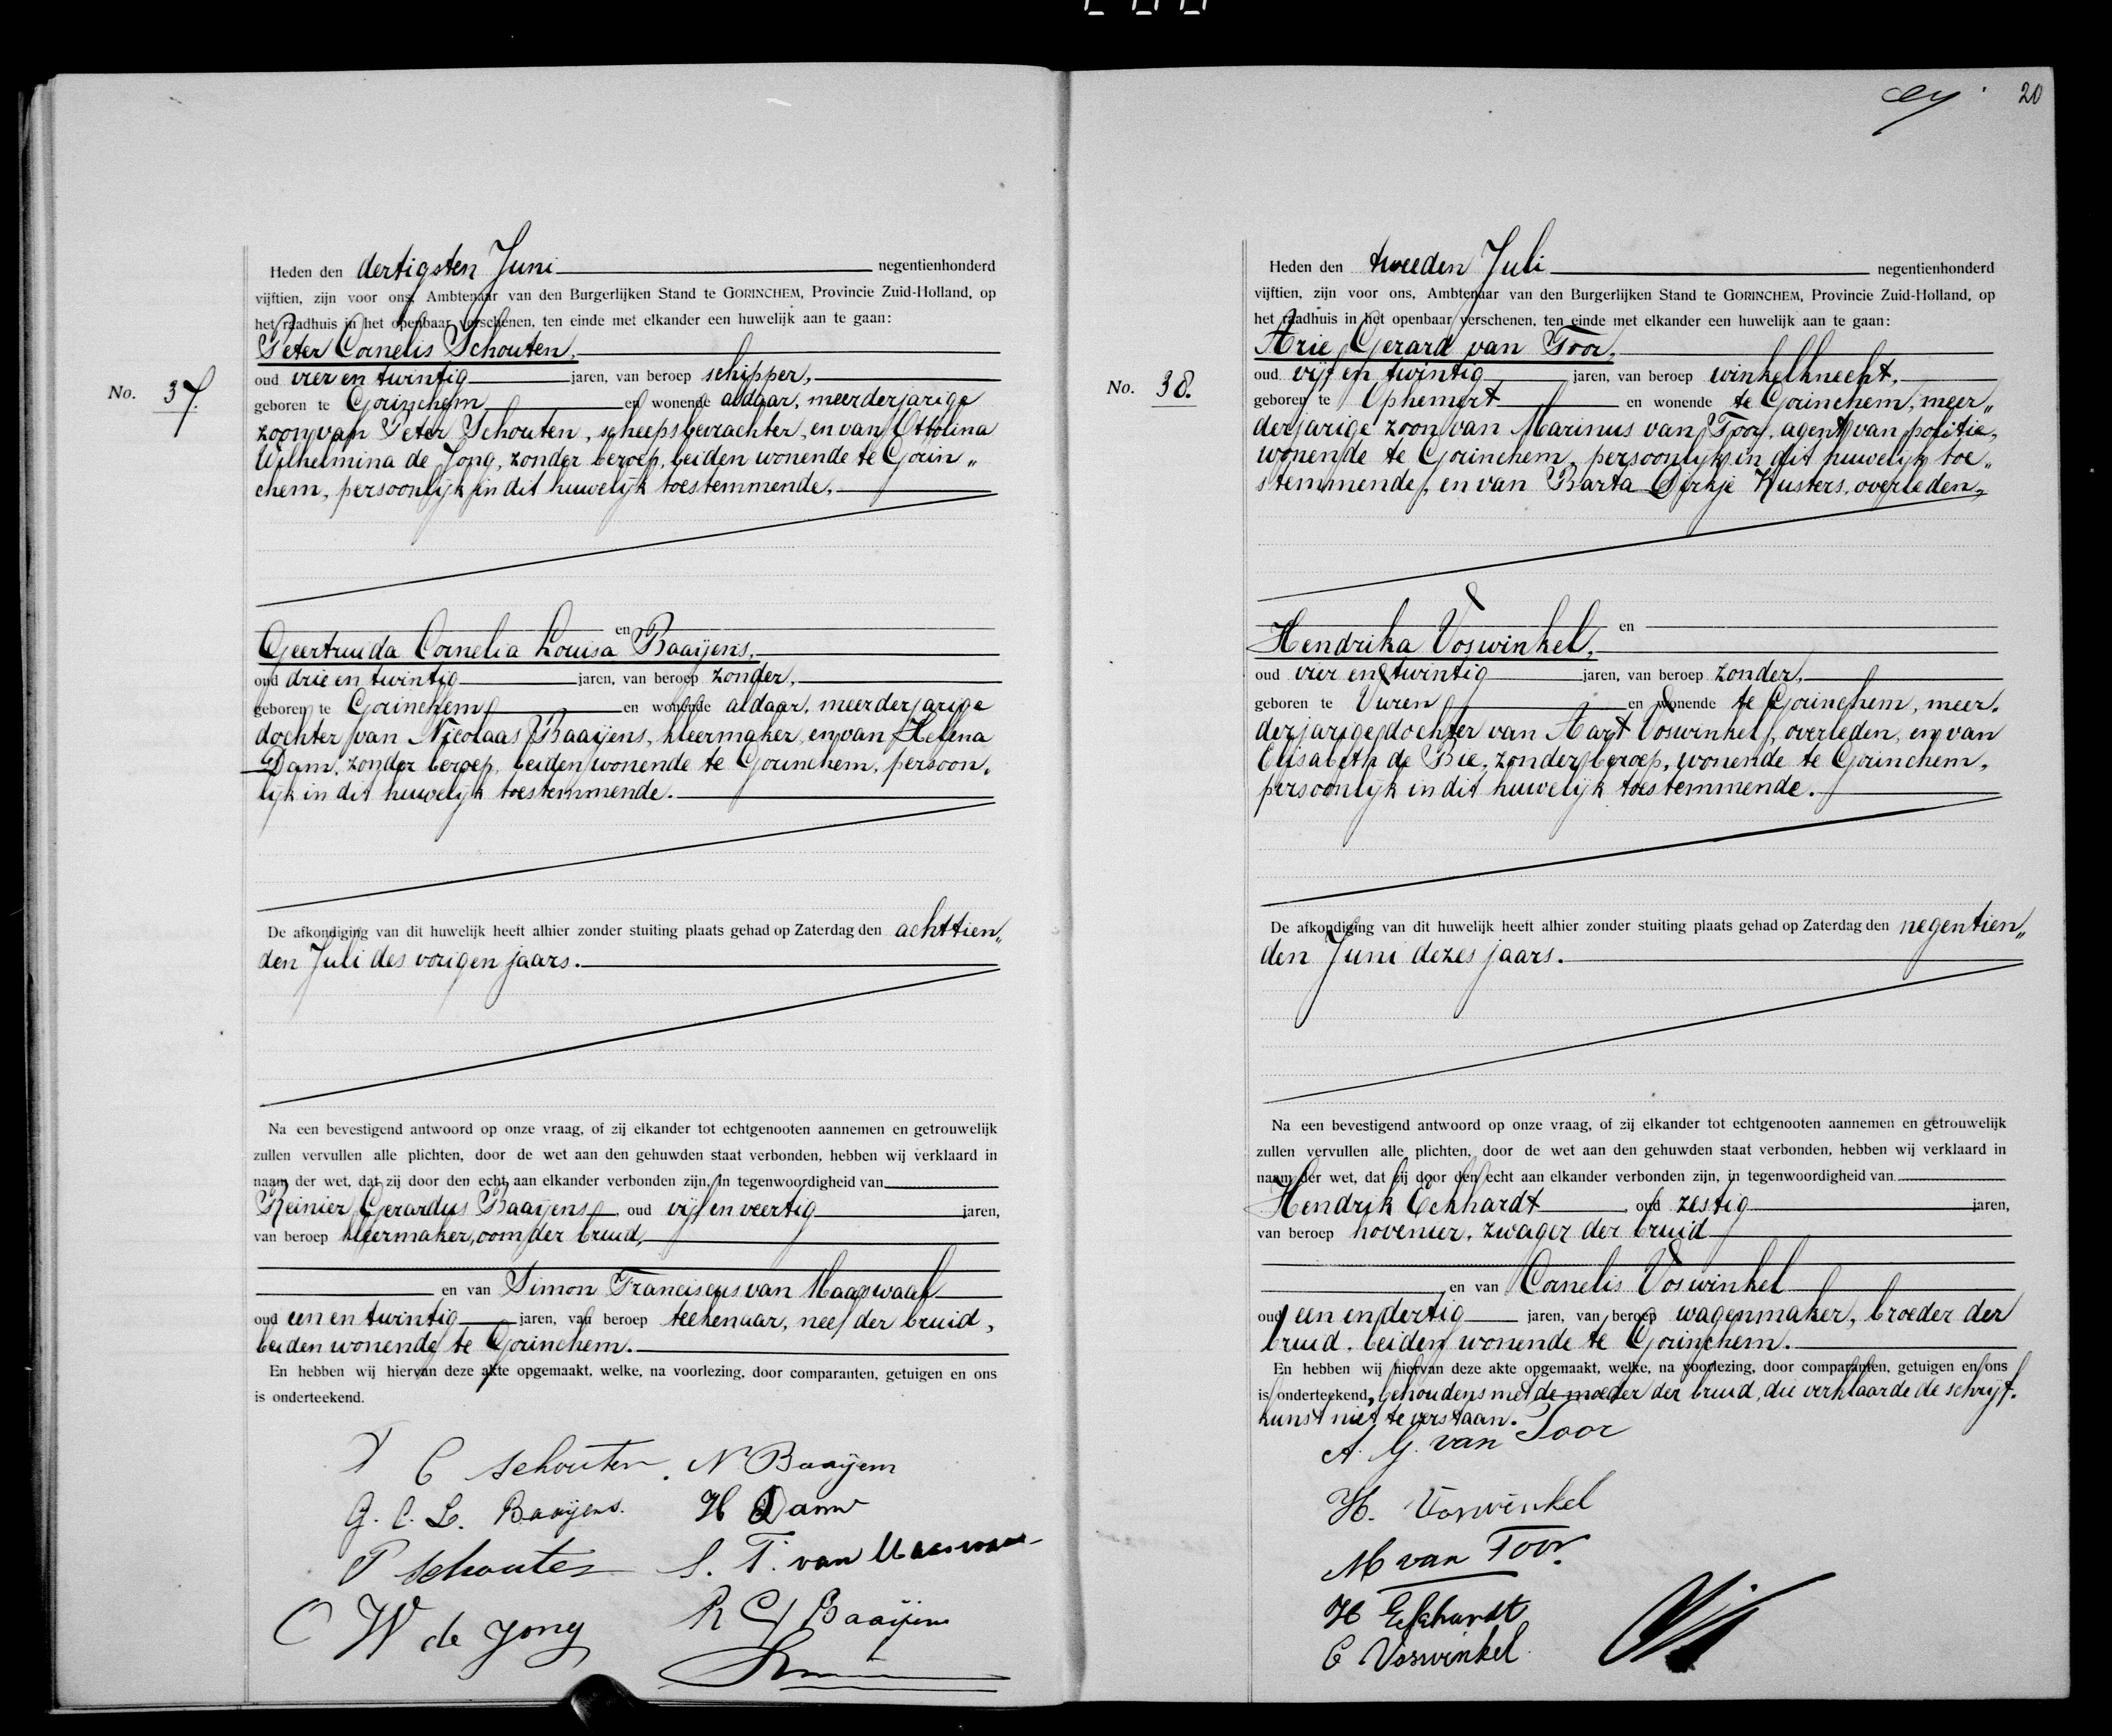 No. 37.
Heden den dertigsten Juni negentienhonderd
vijftien, zijn voor ons, Ambtenaar van den Burgerlijken Stand te GORINCHEM, Provincie Zuid-Holland, op
het raadhuis in het openbaar verschenen, ten einde met elkander een huwelijk aan te gaan:
Peter Cornelis Schouten,
oud vier en twintig jaren, van beroep schipper,
geboren te Gorinchem en wonende aldaar, meerderjarige
zoon van Peter Schouten, scheepsbevrachter, en van Ottolina
Wilhelmina de Jong, zonder beroep, beiden wonende te Gorin„
chem, persoonlijk in dit huwelijk toestemmende,
en
Geertruida Cornelia Louisa Baaijens,
oud drie en twintig jaren, van beroep zonder,
geboren te Gorinchem en wonende aldaar, meerderjarige
dochter van Nicolaas Baaijens, kleermaker, en van Helena
Dam, zonder beroep, beiden wonende te Gorinchem, persoon„
lijk in dit huwelijk toestemmende.
De afkondiging van dit huwelijk heeft alhier zonder stuiting plaats gehad op Zaterdag den achttien„
den Juli des vorigen jaars.
Na een bevestigend antwoord op onze vraag, of zij elkander tot echtgenooten aannemen en getrouwelijk
zullen vervullen alle plichten, door de wet aan den gehuwden staat verbonden, hebben wij verklaard in
naam der wet, dat zij door den echt aan elkander verbonden zijn, in tegenwoordigheid van
Reinier Gerardus Baaijens, oud vijf en veertig jaren,
van beroep kleermaker, oom der bruid,
en van Simon Franciscus van Maaswaal
oud een en twintig jaren, van beroep teekenaar, neef der bruid,
beiden wonende te Gorinchem.
En hebben wij hiervan deze akte opgemaakt, welke, na voorlezing, door comparanten, getuigen en ons
is onderteekend.
P C Schouten. N Baaijens
G. C. L. Baaijens. H Dam
P Schouten S. F. van Maaswaal
O W de Jong R G Baaijens
20
No. 38.
Heden den tweeden Juli negentienhonderd
vijftien, zijn voor ons, Ambtenaar van den Burgerlijken Stand te GORINCHEM, Provincie Zuid-Holland, op
het raadhuis in het openbaar verschenen, ten einde met elkander een huwelijk aan te gaan:
Arie Gerard van Toor,
oud vijf en twintig jaren, van beroep winkelknecht,
geboren te Ophemert en wonende te Gorinchem, meer„
derjarige zoon van Marinus van Toor, agent van politie,
wonende te Gorinchem, persoonlijk in dit huwelijk toe„
stemmende, en van Barta Dirkje Kusters, overleden,
en
Hendrika Voswinkel,
oud vier en twintig jaren, van beroep zonder,
geboren te Vuren en wonende te Gorinchem, meer„
derjarige dochter van Aart Voswinkel, overleden, en van
Elisabeth de Bie, zonder beroep, wonende te Gorinchem,
persoonlijk in dit huwelijk toestemmende.
De afkondiging van dit huwelijk heeft alhier zonder stuiting plaats gehad op Zaterdag den negentien„
den Juni dezes jaars.
Na een bevestigend antwoord op onze vraag, of zij elkander tot echtgenooten aannemen en getrouwelijk
zullen vervullen alle plichten, door de wet aan den gehuwden staat verbonden, hebben wij verklaard in
naam der wet, dat zij door den echt aan elkander verbonden zijn, in tegenwoordigheid van
Hendrik Eckhardt, oud zestig jaren,
van beroep hovenier, zwager der bruid
en van Cornelis Voswinkel
oud een en dertig jaren, van beroep wagenmaker, broeder der
bruid, beiden wonende te Gorinchem.
En hebben wij hiervan deze akte opgemaakt, welke, na voorlezing, door comparanten, getuigen en ons
is onderteekend, behoudens met de moeder der bruid, die verklaarde de schrijf„
kunst niet te verstaan.
A. G. van Toor
H. Voswinkel
M van Toor.
H Eckhardt
C Voswinkel